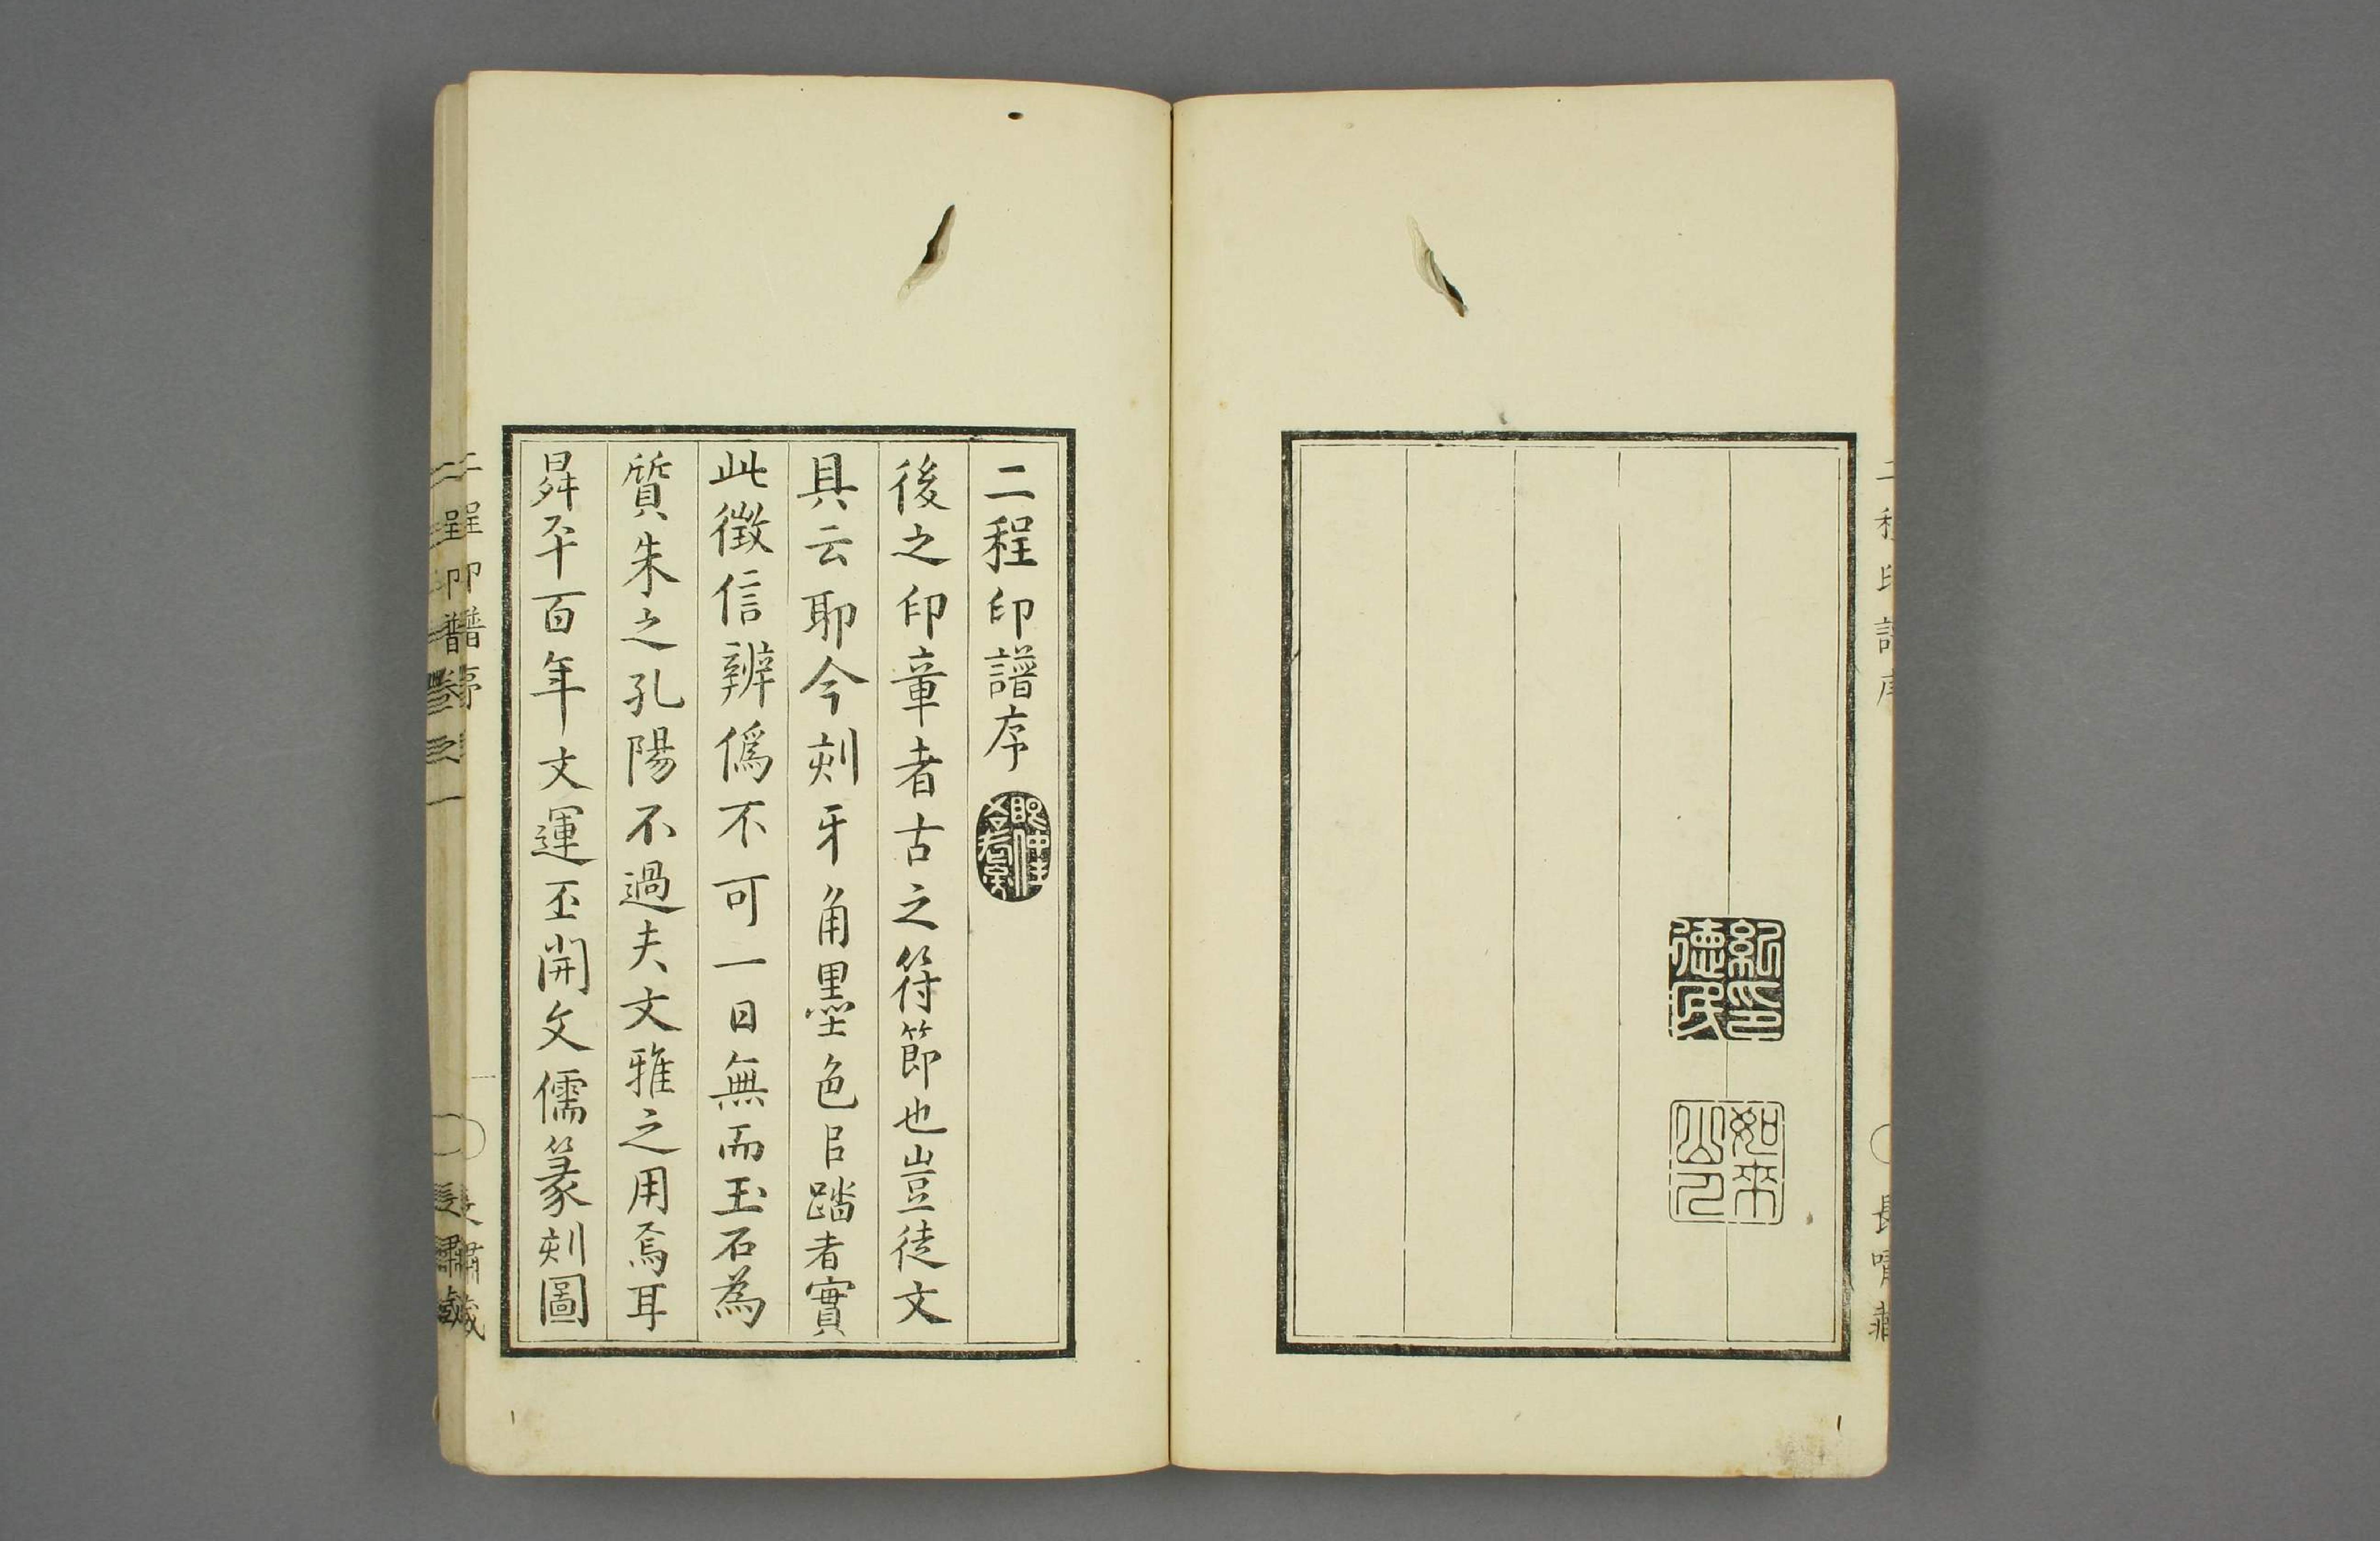 紀德民印
如來山人
二程印譜序
後之印章者古之符節也豈徒文
具云耶今刻牙角墨色㠯蹈者實
此徵信辨僞不可一日無而玉石為
質朱之孔陽不過夫文雅之用焉耳
昇平百年文運丕開文儒篆刻圖
二程印譜序
長嘯藏
二程印譜卷之一
長嘯藏